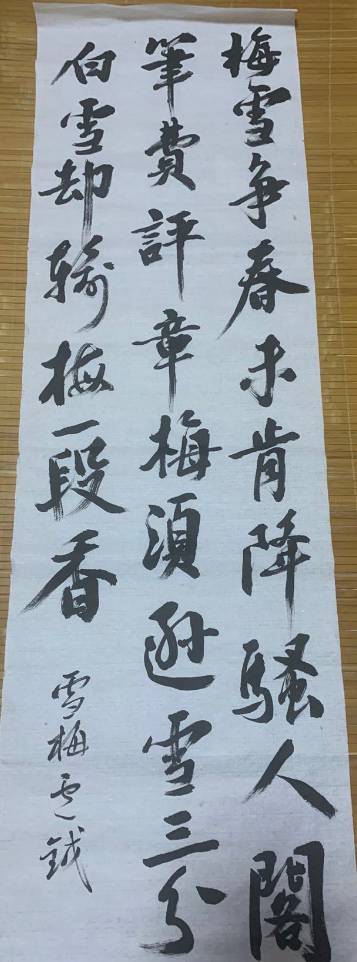 梅雪争春未肯降騷人閣
筆費評章梅須遜雪三分
白雪却輸梅一段香
雪梅盧鉞